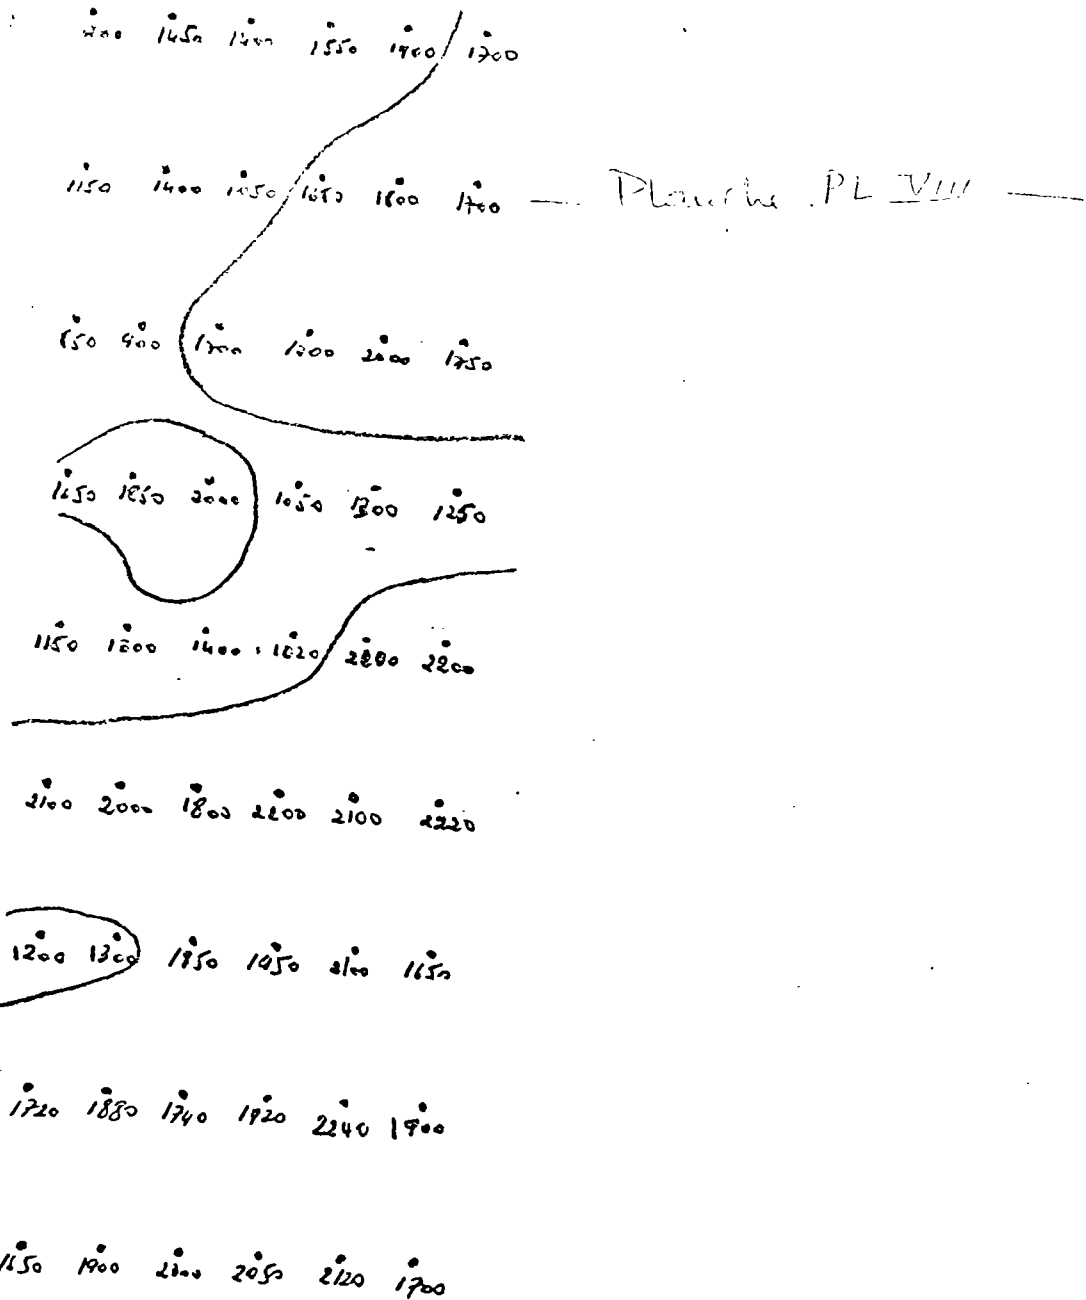 1450 1400 1550 1900 1700
1150 1400 1650 1800 1700 — Planche . PL VIII —
850 900 1700 1700 2000 1750
1650 1850 2000 1050 1300 1250
1150 1200 1400 1820 2200 2200
2100 2000 1800 2200 2100 2220
1200 1300 1850 1450 2100 1650
1720 1880 1740 1920 2240 1900
1650 1900 2050 2120 1700